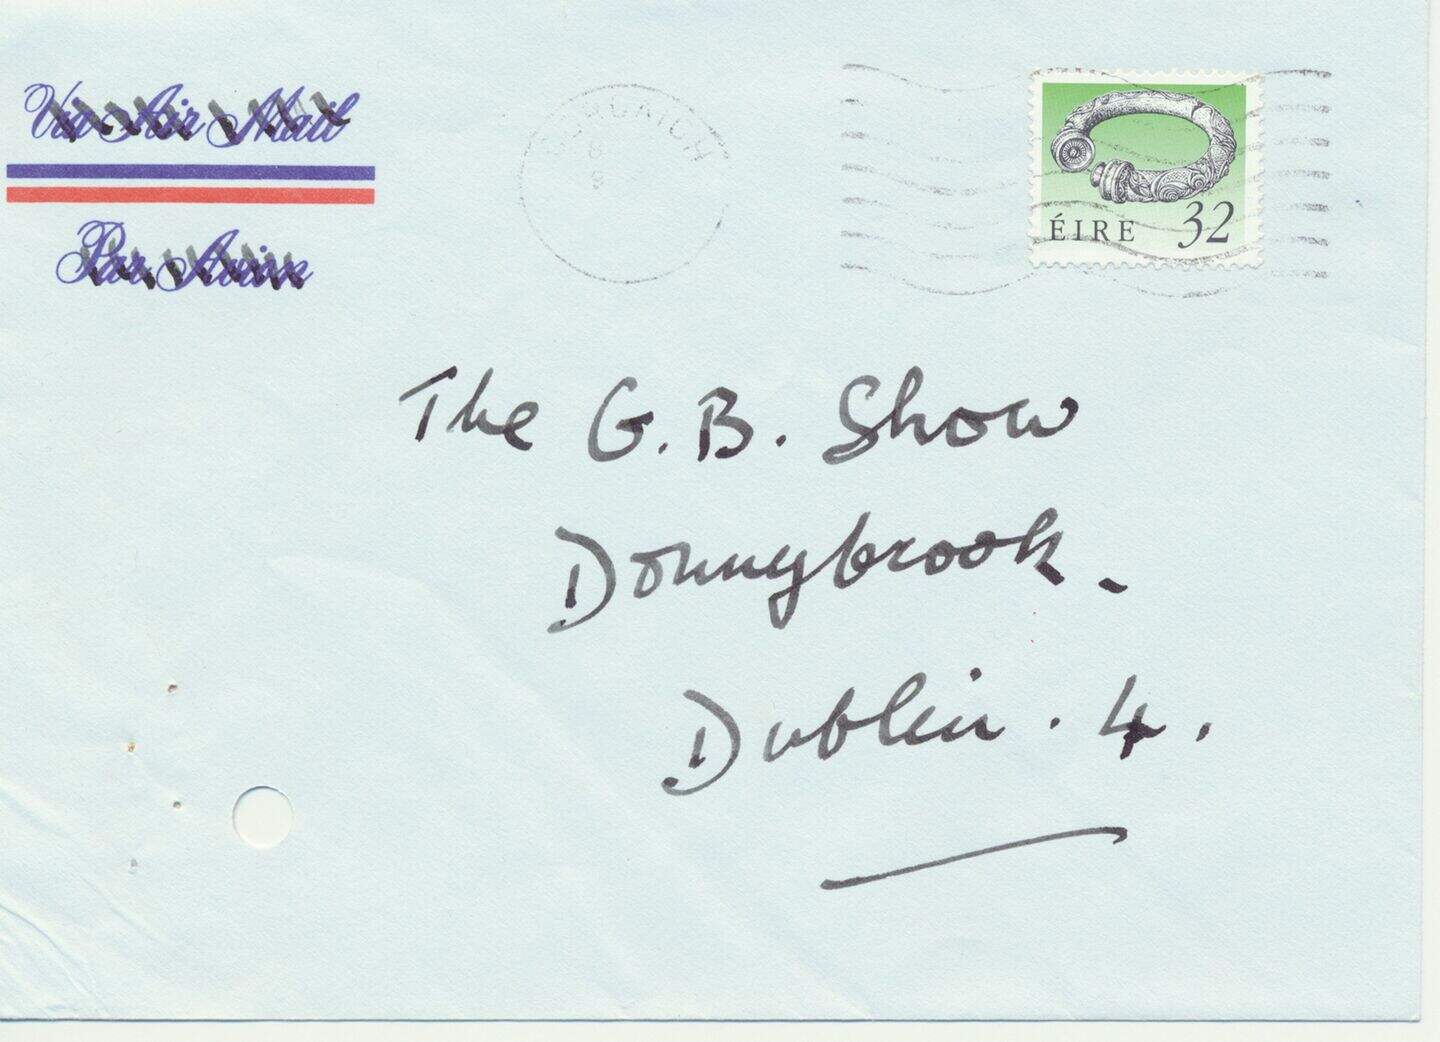 Via Air Mail
Par Avion
ÉIRE 32
The G. B. Show
Donnybrook.
Dublin. 4.